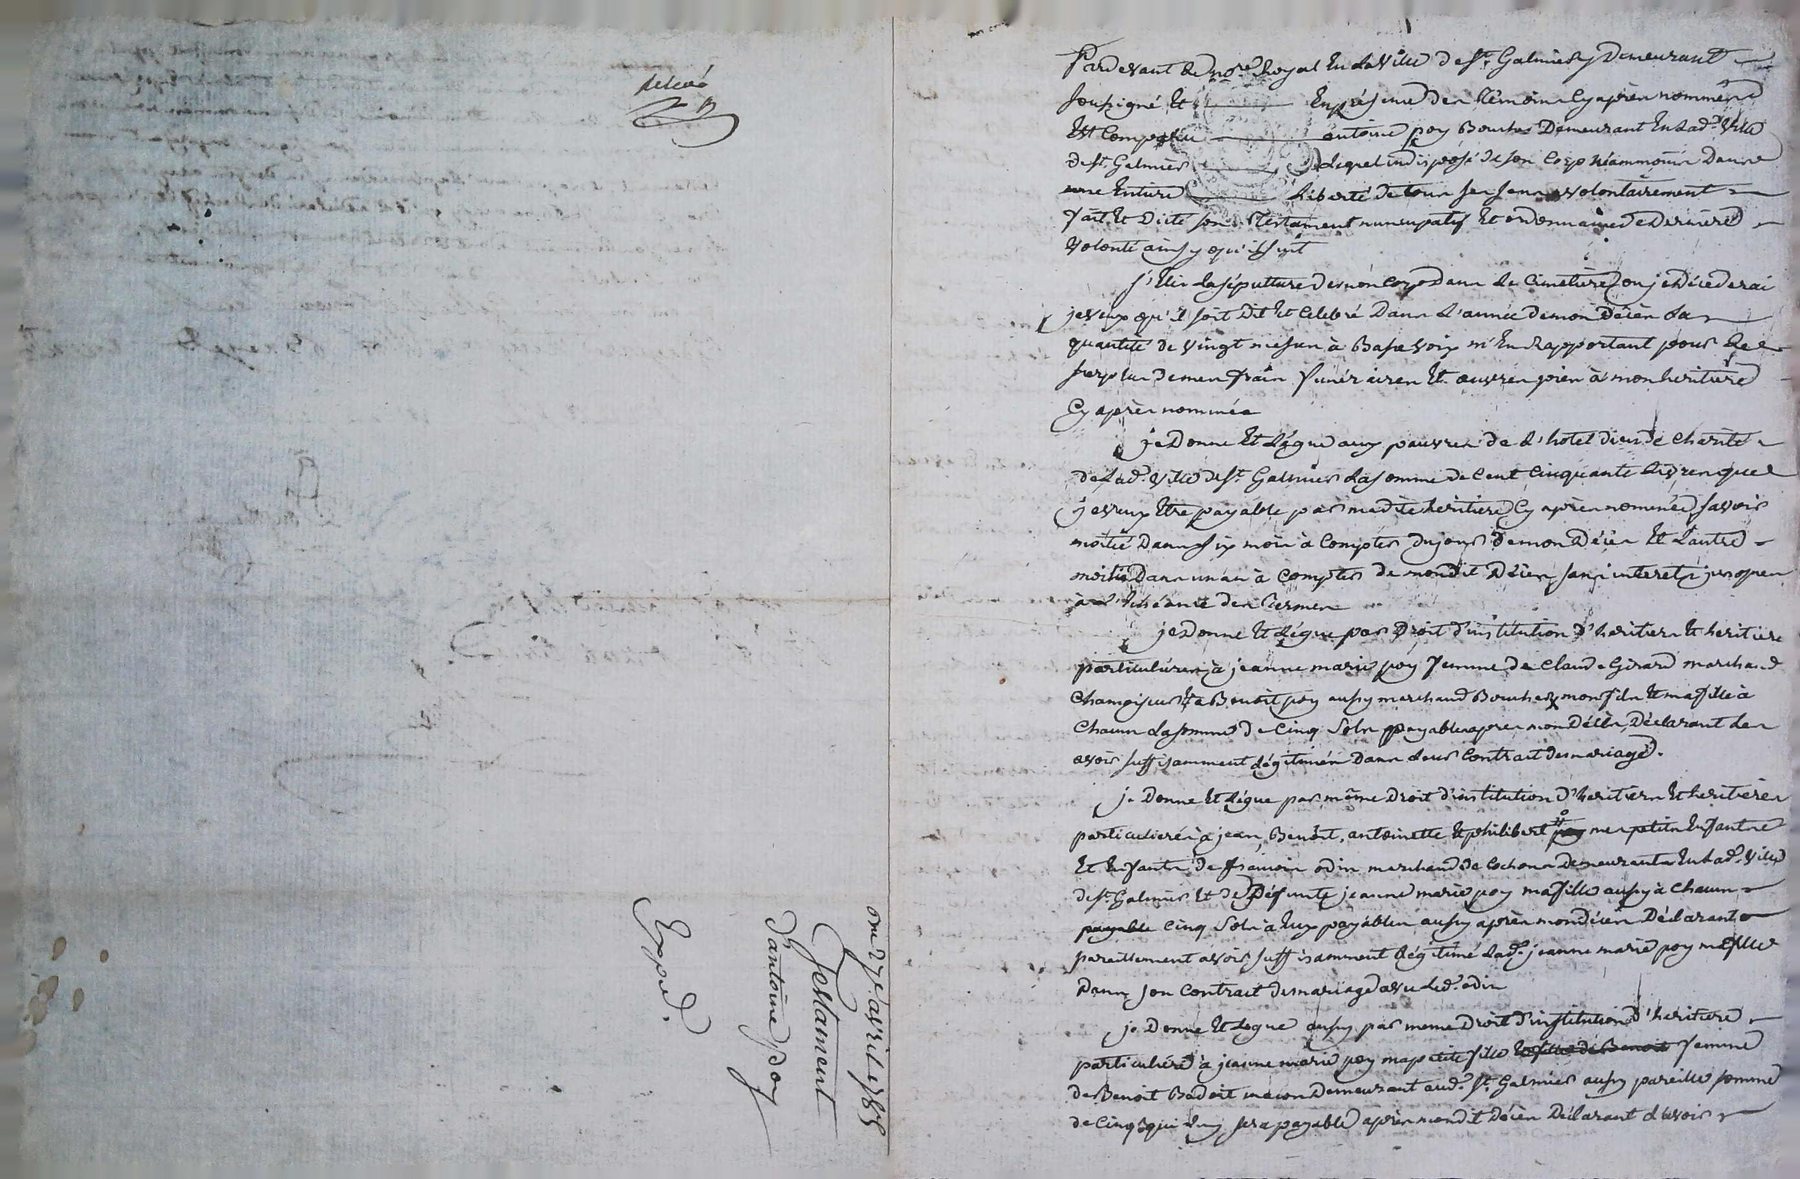 relevé
du 27e avril 1785
Testament
d'antoine poy
Exped.
Pardevant le no.re Royal En la Ville de St. Galmier y Demeurant
soussigné Et En présence des témoins Cy après nommés
Est Comparu antoine poy Boucher Demeurant En lad.e Ville
de St. Galmier Lequel indisposé de son Corp néammoins Dans
une Entiere Liberté de tous ses sens a volontairement
fait Et Dicté son Testament nuncupatif Et ordonnance de Derniere
Volonté ainsy qu'il suit
j'Elis la sépulture de mon Corp Dans le Cimetiere ou je Décéderai
je veux qu'il soit Dit Et Celebré Dans l'année de mon Décès la
quantité de vingt messes à Basse Voix m'En Rapportant pour le
surplus de mes frais funéraires Et œuvres pies à mon heritiere
Cy après nommée
je Donne Et Légue aux pauvres de L'hotel dieu de Charité
de Lad.e Ville de St. Galmier La somme de Cent Cinquante Livres que
je veux Etre payable par madite heritiere Cy après nommée savoir
moitié Dans six mois à Compter du jour de mon Décès Et L'autre
moitié Dans un an à Compter de mondit Décès sans interets jusques
à L'Echéance des termes
je Donne Et Légue par Droit d'institution d'heritiers Et heritiere
particulieres à jeanne marie poy femme de Claude Girard marchand
Chamoiseur Et à Benoit poy aussy marchand Boucher mon fils Et ma fille à
Chacun La somme de Cinq Sols payable après mon Décès, Déclarant les
avoir suffisamment Légitimés Dans Leur Contrait de mariage.
je Donne Et Légue par même Droit d'institution d'heritiers Et heritieres
particulieres à jean, Benoit, antoinette Et philibert poy mes petits Enfants
Et Enfants de francois odin marchand de Cochons Demeurants En Lad.e Ville
de St. Galmier Et de Défunte jeanne marie poy ma fille aussy à Chacun
payable Cinq Sols à Eux payables aussy après mon décès Déclarant
pareillement avoir suffisamment Légitimé Lad.e jeanne marie poy ma fille
Dans son Contrait de mariage avec Led.t odin
je Donne Et Legue aussy par meme Droit d'institution d'heritiere
particuliére à jeanne marie poy ma petite fille Et fille de Benoit femme
de Benoit Badoit macon Demeurant aud.t St. Galmier aussy pareille somme
de Cinq qui Luy sera payable après mondit Décès Déclarant L'avoir